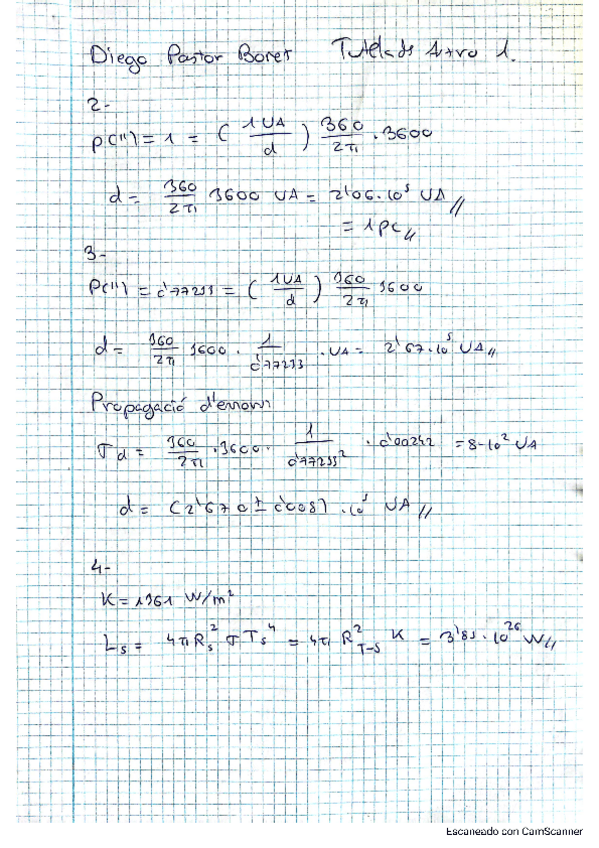 Diego Pastor Bonet Tutelada Astro 1.
2-
P(") = 1 = ( 1 UA / d ) 360 / 2π · 3600
d = 360 / 2π 3600 UA = 2'06·10⁵ UA //
= 1 pc //
3-
P(") = 0'77233 = ( 1 UA / d ) 360 / 2π 3600
d = 360 / 2π 3600 · 1 / 0'77233 · UA = 2'67·10⁵ UA //
Propagació d'errors
σd = 360 / 2π · 3600 · 1 / 0'77233² · 0'00242 = 8·10² UA
d = (2'670 ± 0'008) · 10⁵ UA //
4-
K = 1361 W/m²
Ls = 4πRs² σ Ts⁴ = 4π R²T-S K = 3'83·10²⁶ W //
Escaneado con CamScanner